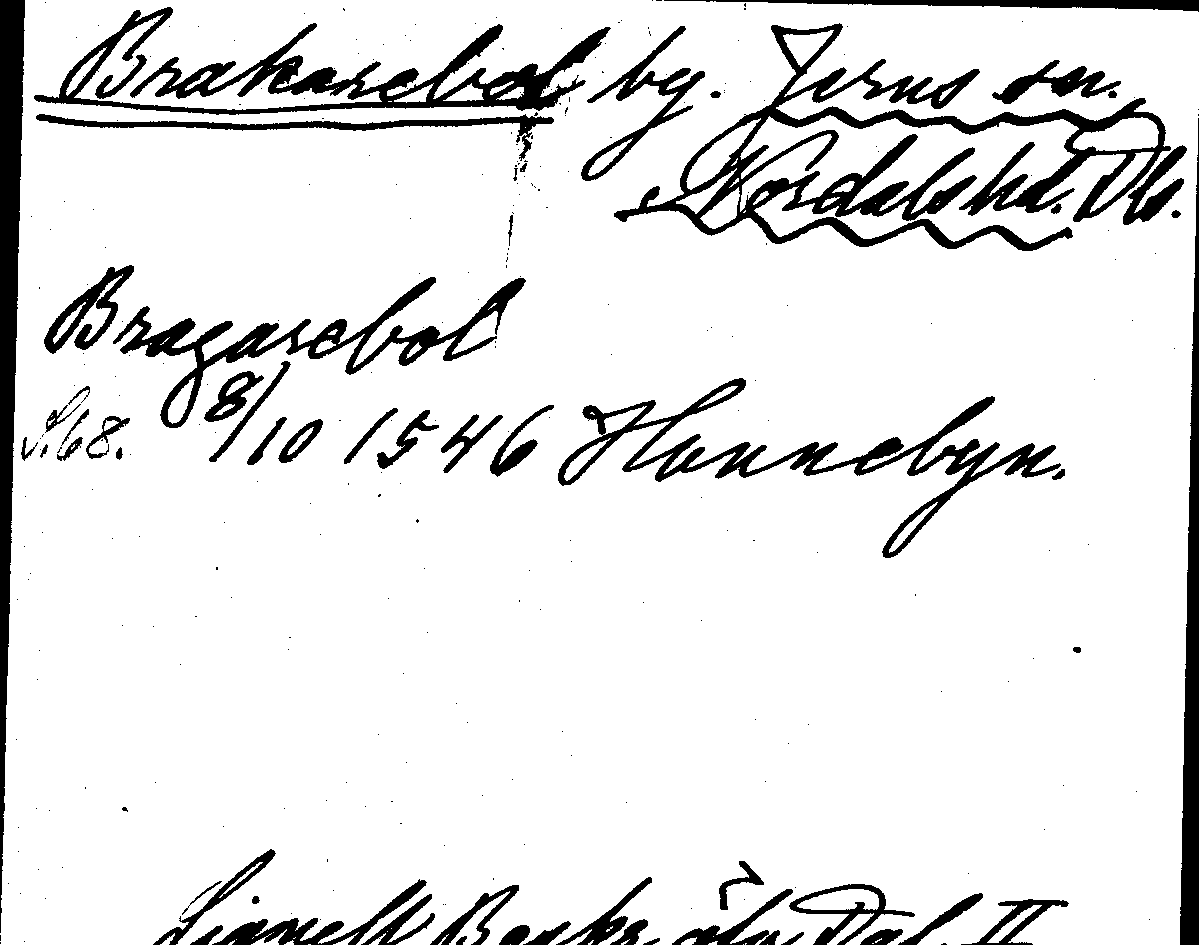 Brakarebol by. Jerns sn.,
Nordals hd. Dls.
Bragarebol
S. 68. 8/10 1546 Hannebyn.
Lignell Beskr. Dal. II